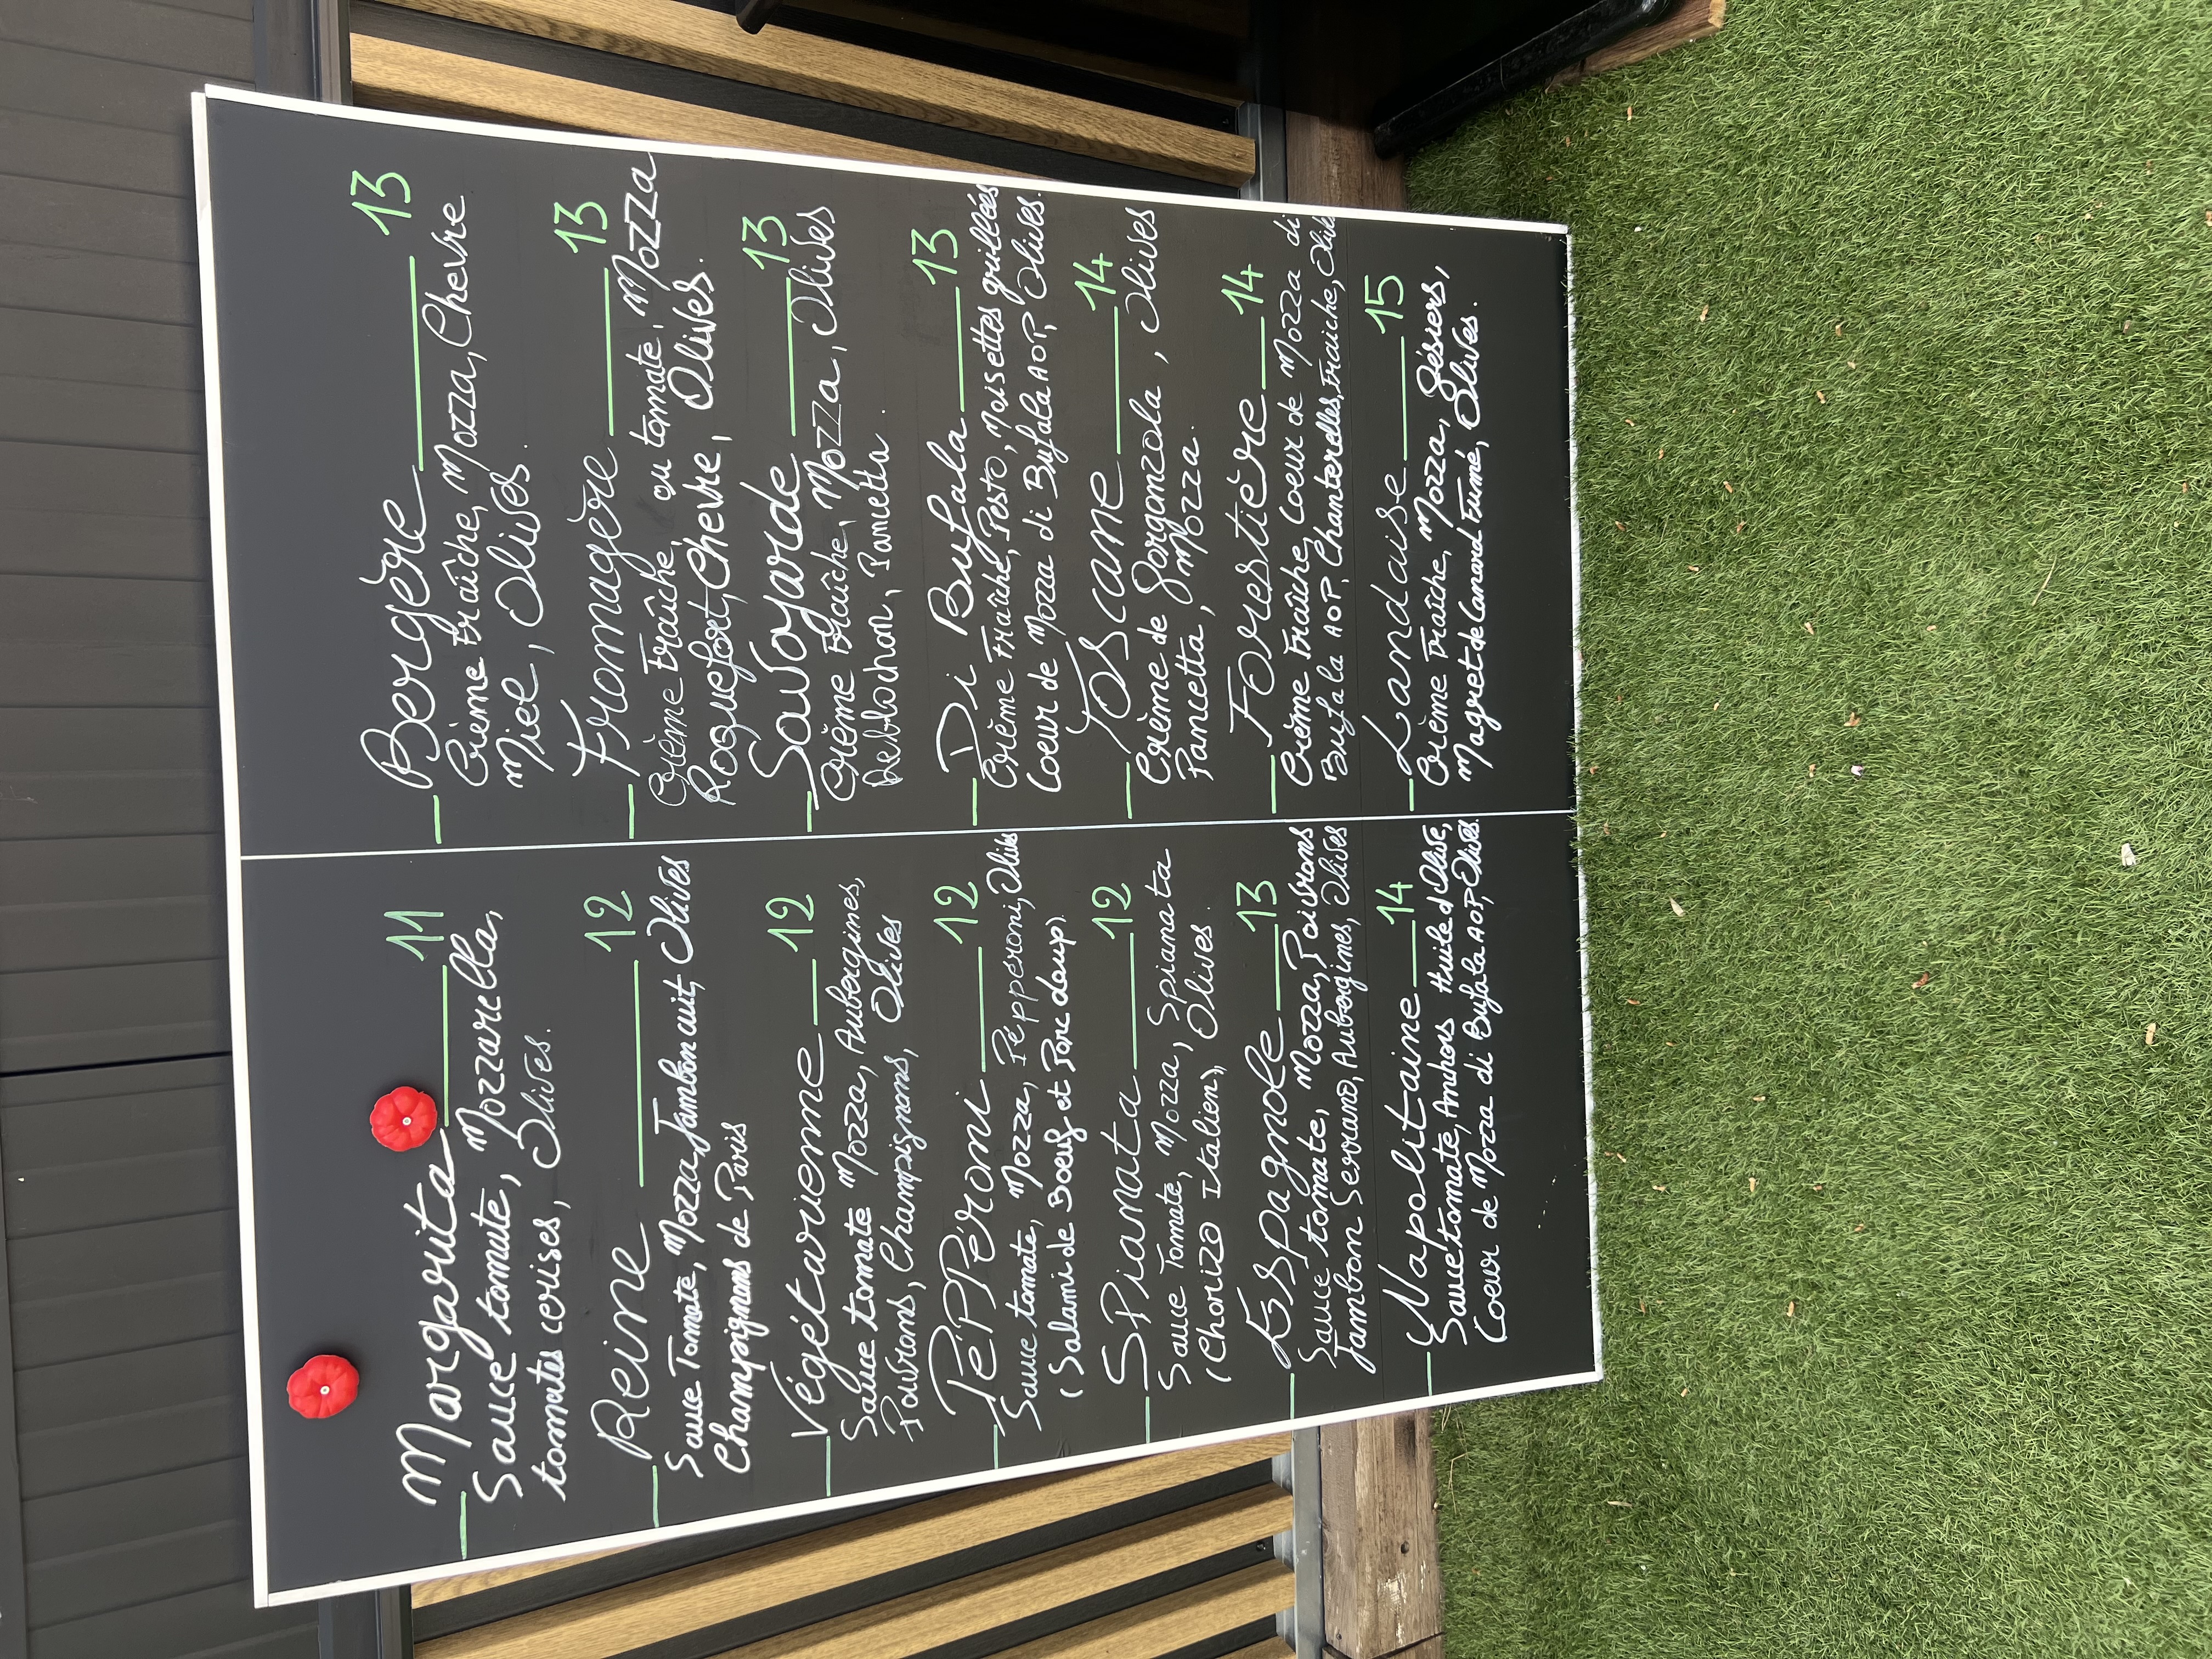 Margarita 11
Sauce tomate, Mozzarella,
tomates cerises, Olives.
Reine 12
Sauce Tomate, Mozza, Jambon cuit, Olives
Champignons de Paris
Végétarienne 12
Sauce tomate Mozza, Aubergines,
Poivrons, Champignons, Olives
PéPPéroni 12
Sauce tomate, Mozza, Pépperoni, Olives
(Salami de Boeuf et Porc doux).
SPianata 12
Sauce Tomate, Mozza, Spianata
(Chorizo Italien), Olives.
Espagnole 13
Sauce tomate, Mozza, Poivrons
Jambon Serrano, Aubergines, Olives
Napolitaine 14
Sauce tomate, Anchois Huile d'Olive,
Coeur de Mozza di Bufala AOP, Olives.
Bergère 13
Crème Fraîche, Mozza, Chevre
Miel, Olives.
Fromagère 13
Crème Fraîche, ou tomate, Mozza
Roquefort, Chevre, Olives.
Savoyarde 13
Crème Fraîche, Mozza, Olives
Reblochon, Pancetta.
Di Bufala 13
Crème Fraîche, Pesto, Noisettes grillées
Coeur de Mozza di Bufala AOP, Olives.
Toscane 14
Crème de Gorganzola, Olives
Pancetta, Mozza.
Forestière 14
Crème Fraîche, Coeur de Mozza di
Bufala AOP, Chanterelles, Fraiche, Olives
Landaise 15
Crème Fraîche, Mozza, Gésiers,
Magret de Canard Fumé, Olives.